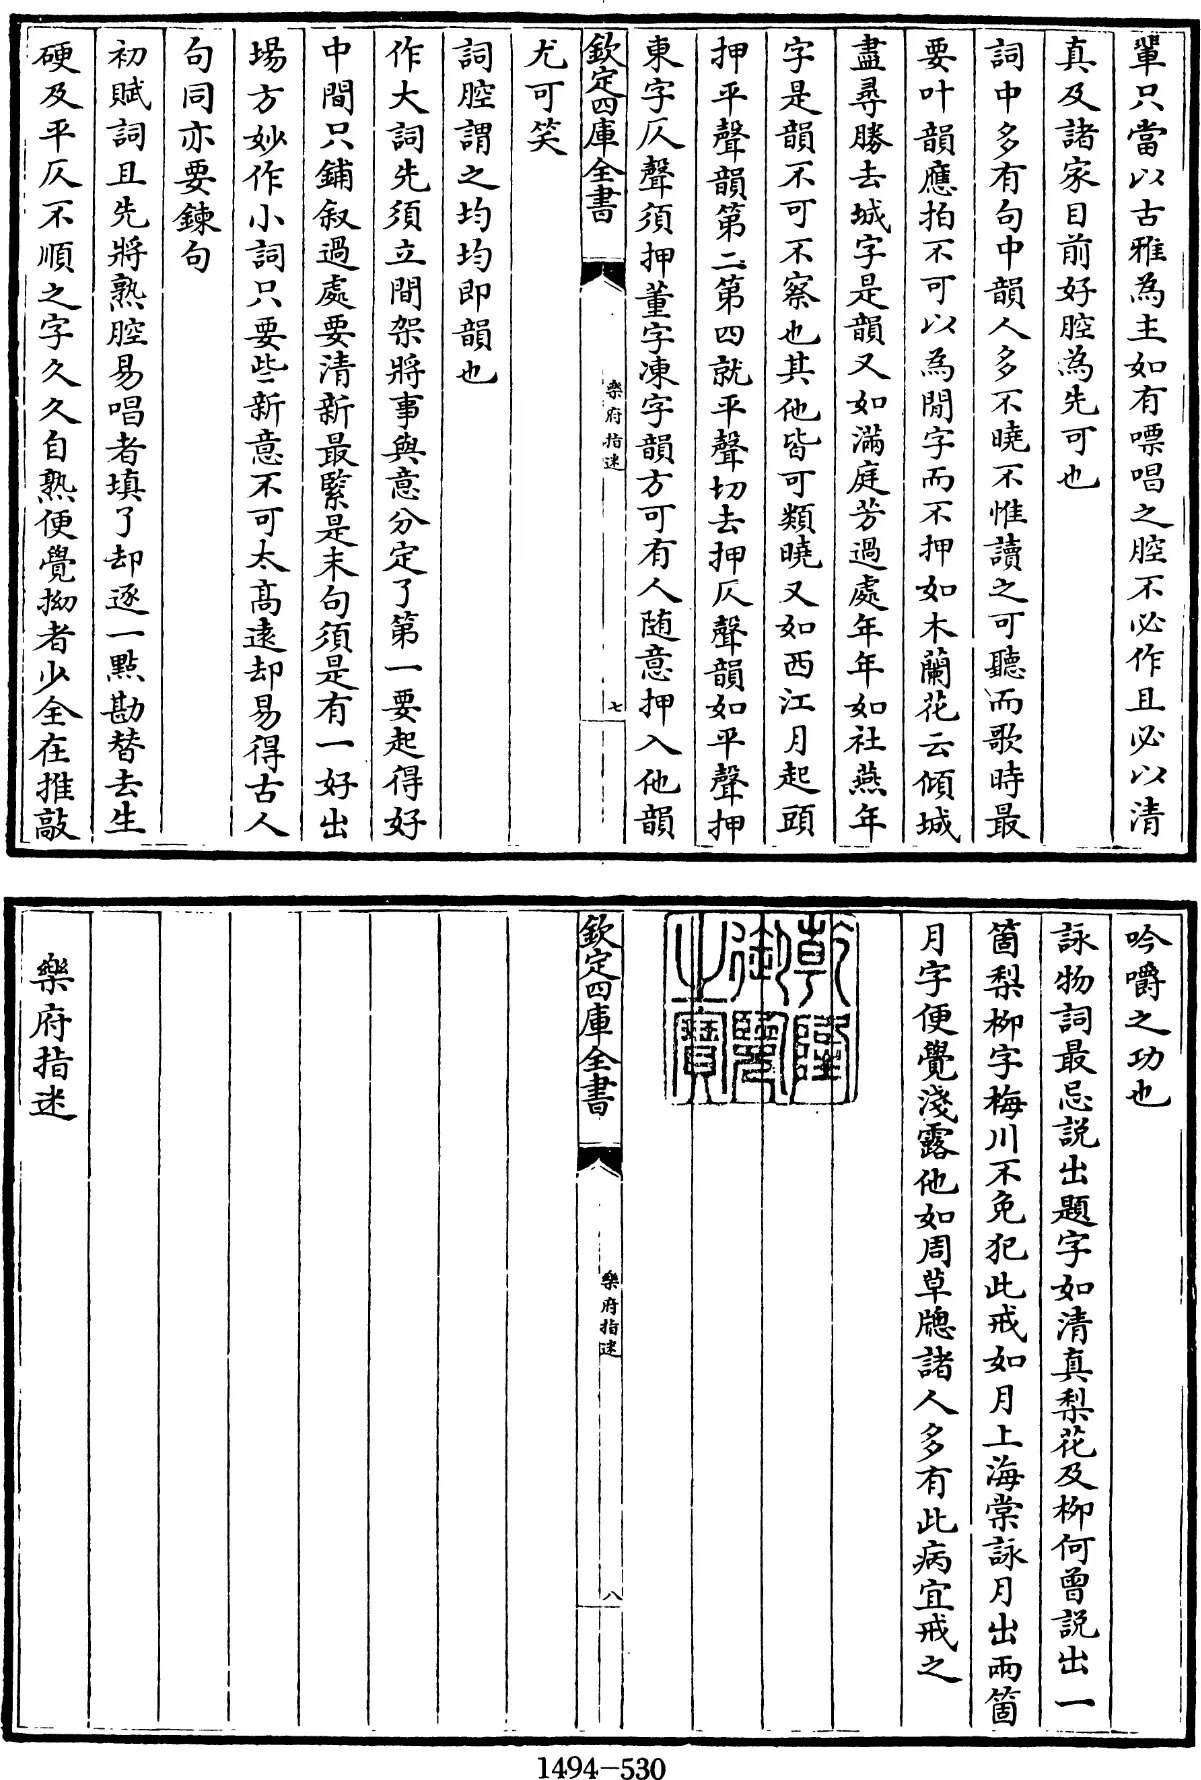 輩只當以古雅為主如有嘌唱之腔不必作且必以清
真及諸家目前好腔為先可也
詞中多有句中韻人多不曉不惟讀之可聽而歌時最
要叶韻應拍不可以為閒字而不押如木蘭花云傾城
盡尋勝去城字是韻又如滿庭芳過處年年如社燕年
字是韻不可不察也其他皆可類曉又如西江月起頭
押平聲韻第二第四就平聲切去押仄聲韻如平聲押
東字仄聲須押董字凍字韻方可有人随意押入他韻
欽定四庫全書
樂府指迷
七
尤可笑
詞腔謂之均均即韻也
作大詞先須立間架將事與意分定了第一要起得好
中間只鋪叙過處要清新最緊是末句須是有一好出
場方妙作小詞只要些新意不可太高遠却易得古人
句同亦要鍊句
初賦詞且先將熟腔易唱者填了却逐一點勘替去生
硬及平仄不順之字久久自熟便覺拗者少全在推敲
吟嚼之功也
詠物詞最忌說出題字如清真梨花及柳何曾說出一
箇梨柳字梅川不免犯此戒如月上海棠詠月出兩箇
月字便覺淺露他如周草牕諸人多有此病宜戒之
乾隆御覽之寶
欽定四庫全書
樂府指迷
八
樂府指迷
1494-530